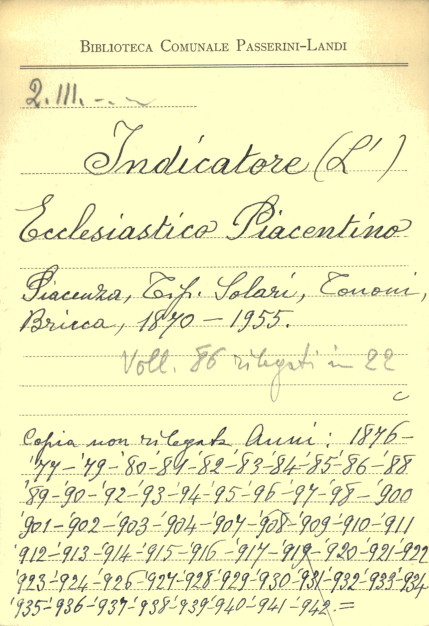 BIBLIOTECA COMUNALE PASSERINI-LANDI
2.III.-.~
Indicatore (L')
Ecclesiastico Piacentino
Piacenza, Tip. Solari, Tononi,
Bricca, 1870-1955.
Voll. 86 rilegati in 22
Copia non rilegata Anni: 1876-
'77-'79-'80-'81-'82-'83-'84-'85-'86-'88
'89-'90-'92-'93-'94-'95-'96-'97-'98-'900
'901-'902-'903-'904-'907-'908-'909-'910-'911
'912-'913-'914-'915-'916-'917-'919-'920-'921-'922
'923-'924-'926-'927-'928-'929-'930-'931-'932-'933-'934
'935-'936-'937-'938-'939-'940-'941-'942.=